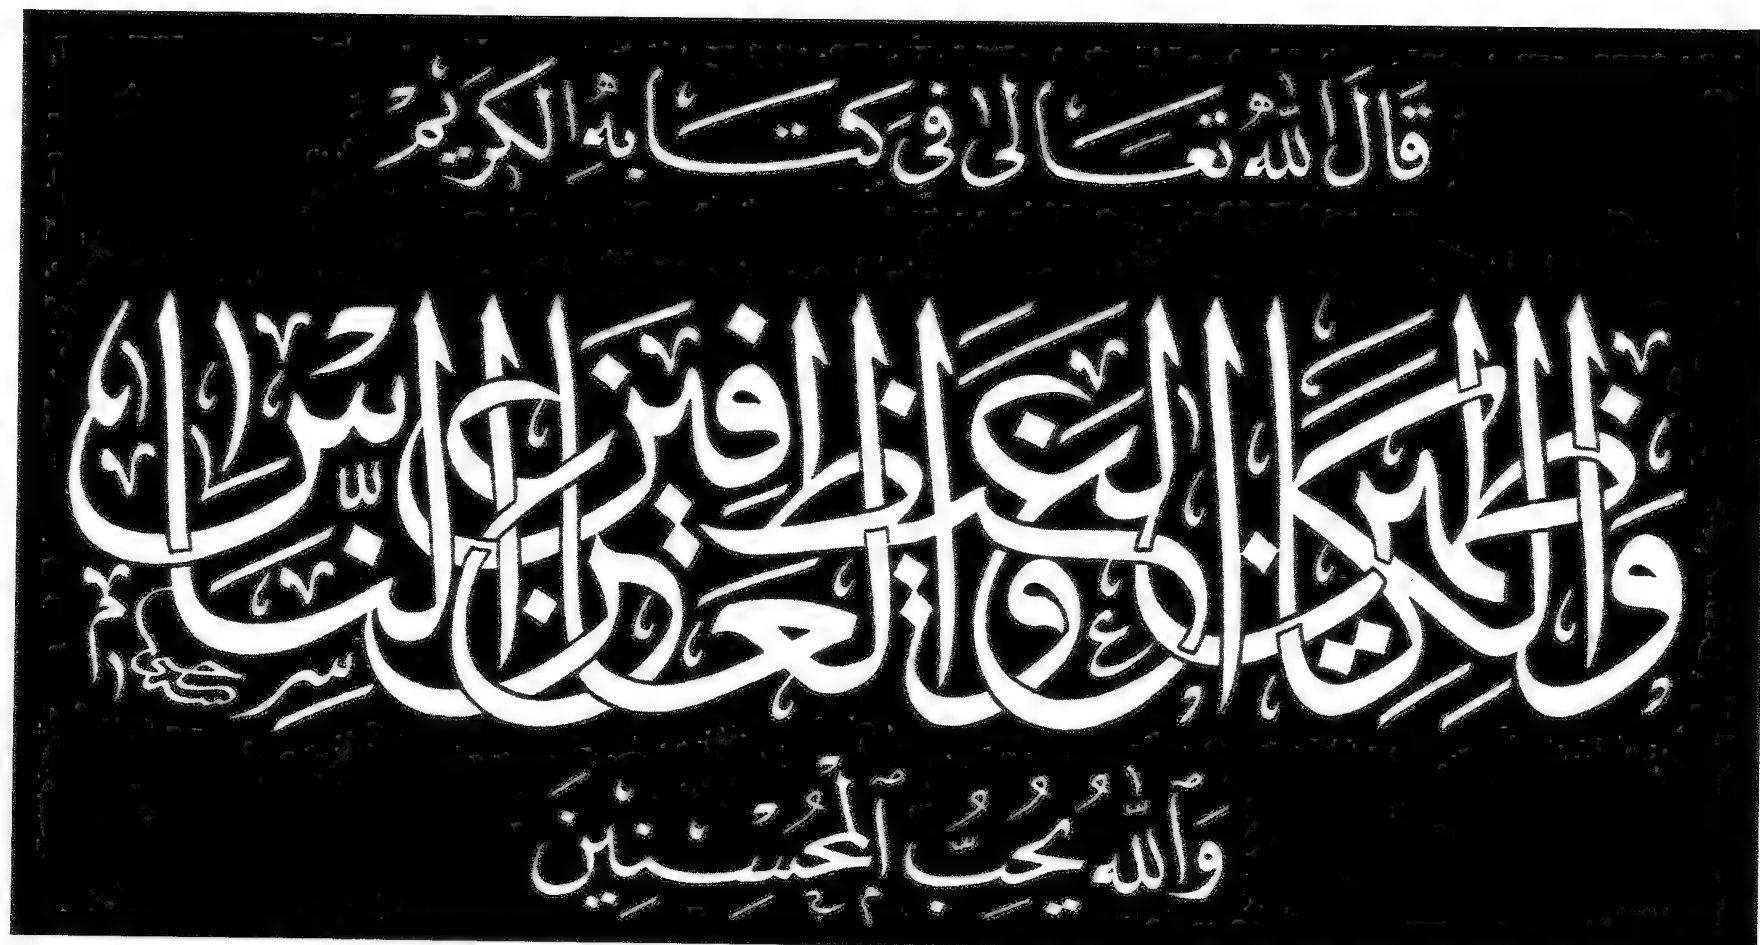 قَالَ اللهُ تَعَالٰى فِي كِتَابِهِ الْكَرِيْمِ
وَالْكَاظِمِيْنَ الْغَيْظَ وَالْعَافِيْنَ عَنِ النَّاسِ
وَٱللّٰهُ يُحِبُّ ٱلْمُحْسِنِيْنَ